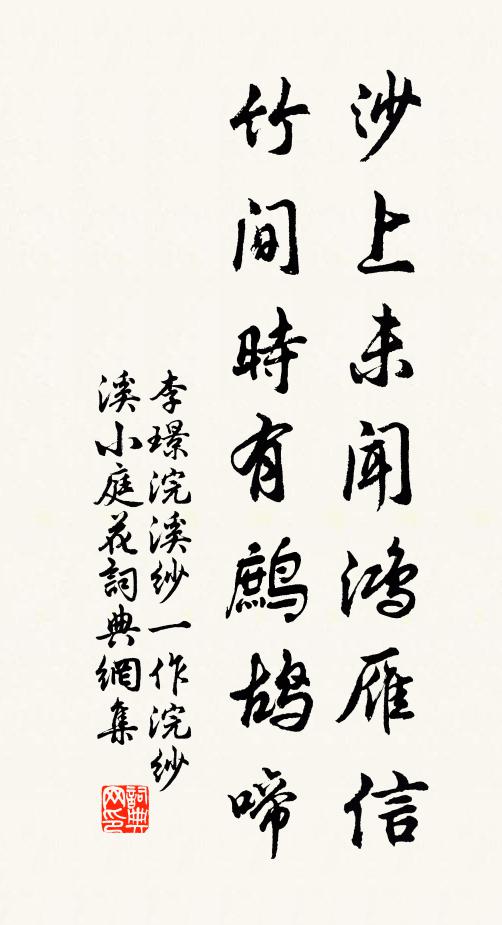 沙上未聞鴻雁信
竹間時有鷓鴣啼
李璟浣溪紗一作浣紗
溪小庭花詞典網集
詞典
网印